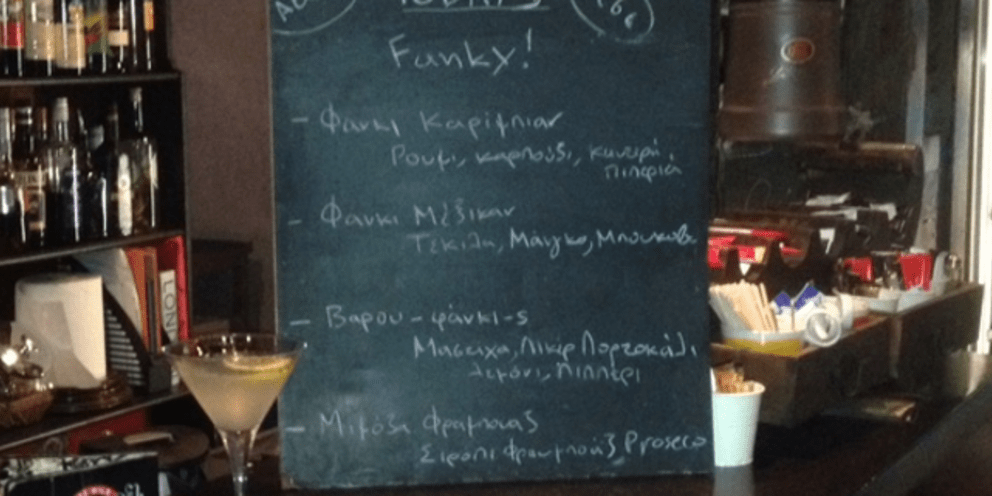 Funky!
- Φανκι Καριμπιαν
Ρουμι, καρπουζι, καυτερή
πιπεριά
- Φανκι Μέξικαν
Τεκιλα, Μάνγκο, Μπουκοβο
- Βαρου-φάνκι-s
Μαστιχα, Λικέρ Πορτοκάλι
λεμόνι, πιππέρι
- Μιμόζα Φραμπουαζ
Σιροπι Φραμπουάζ Prosecco
LOND